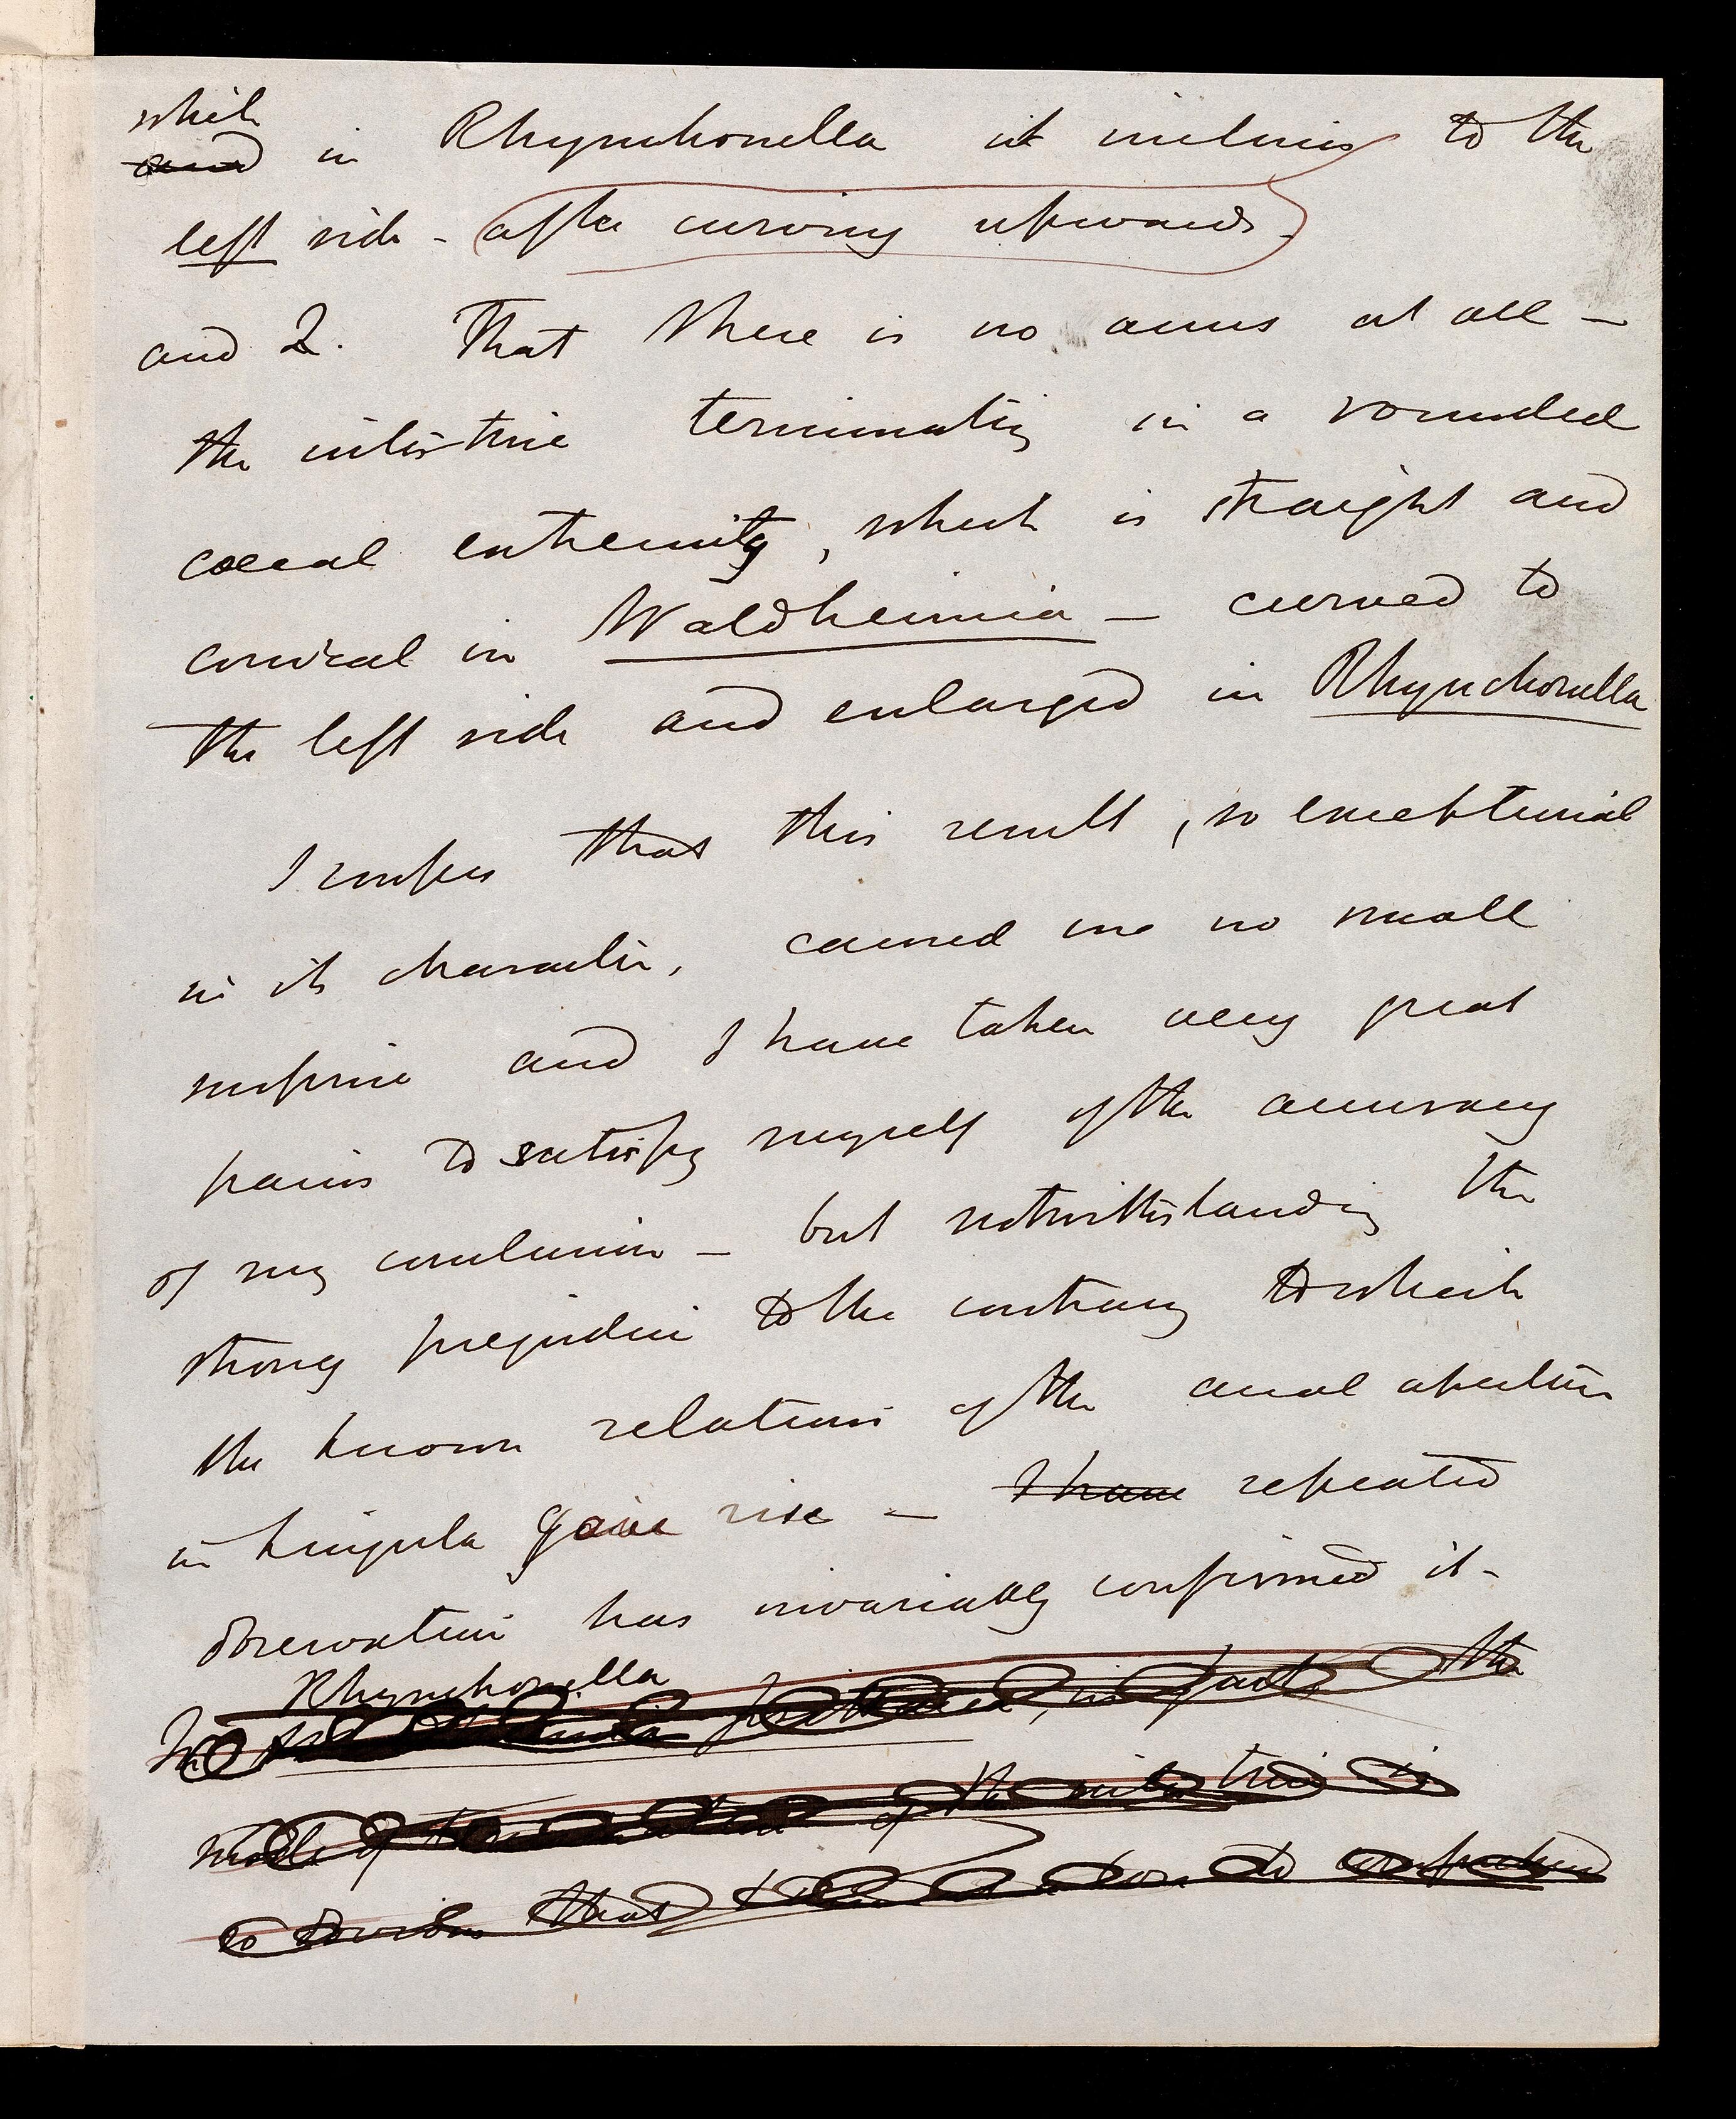 while
and in Rhynchonella it inclines to the
left side - after curving upwards.
and 2. That there is no anus at all —
the intestine terminating in a rounded
coecal extremity, which is straight and
conical in Waldheimia — curved to
the left side and enlarged in Rhynchonella
I confess that this result, so exceptional
in its character, caused me no small
surprise and I have taken very great
pains to satisfy myself of the accuracy
of my conclusion — but notwithstanding the
strong prejudice to the contrary to which
the known relations of the anal aperture
in Lingula gave rise — I have repeated
observation has invariably confirmed it -
Rhynchonella
In psittacea, in fact, the
mode of termination of the intestine is
so obvious that